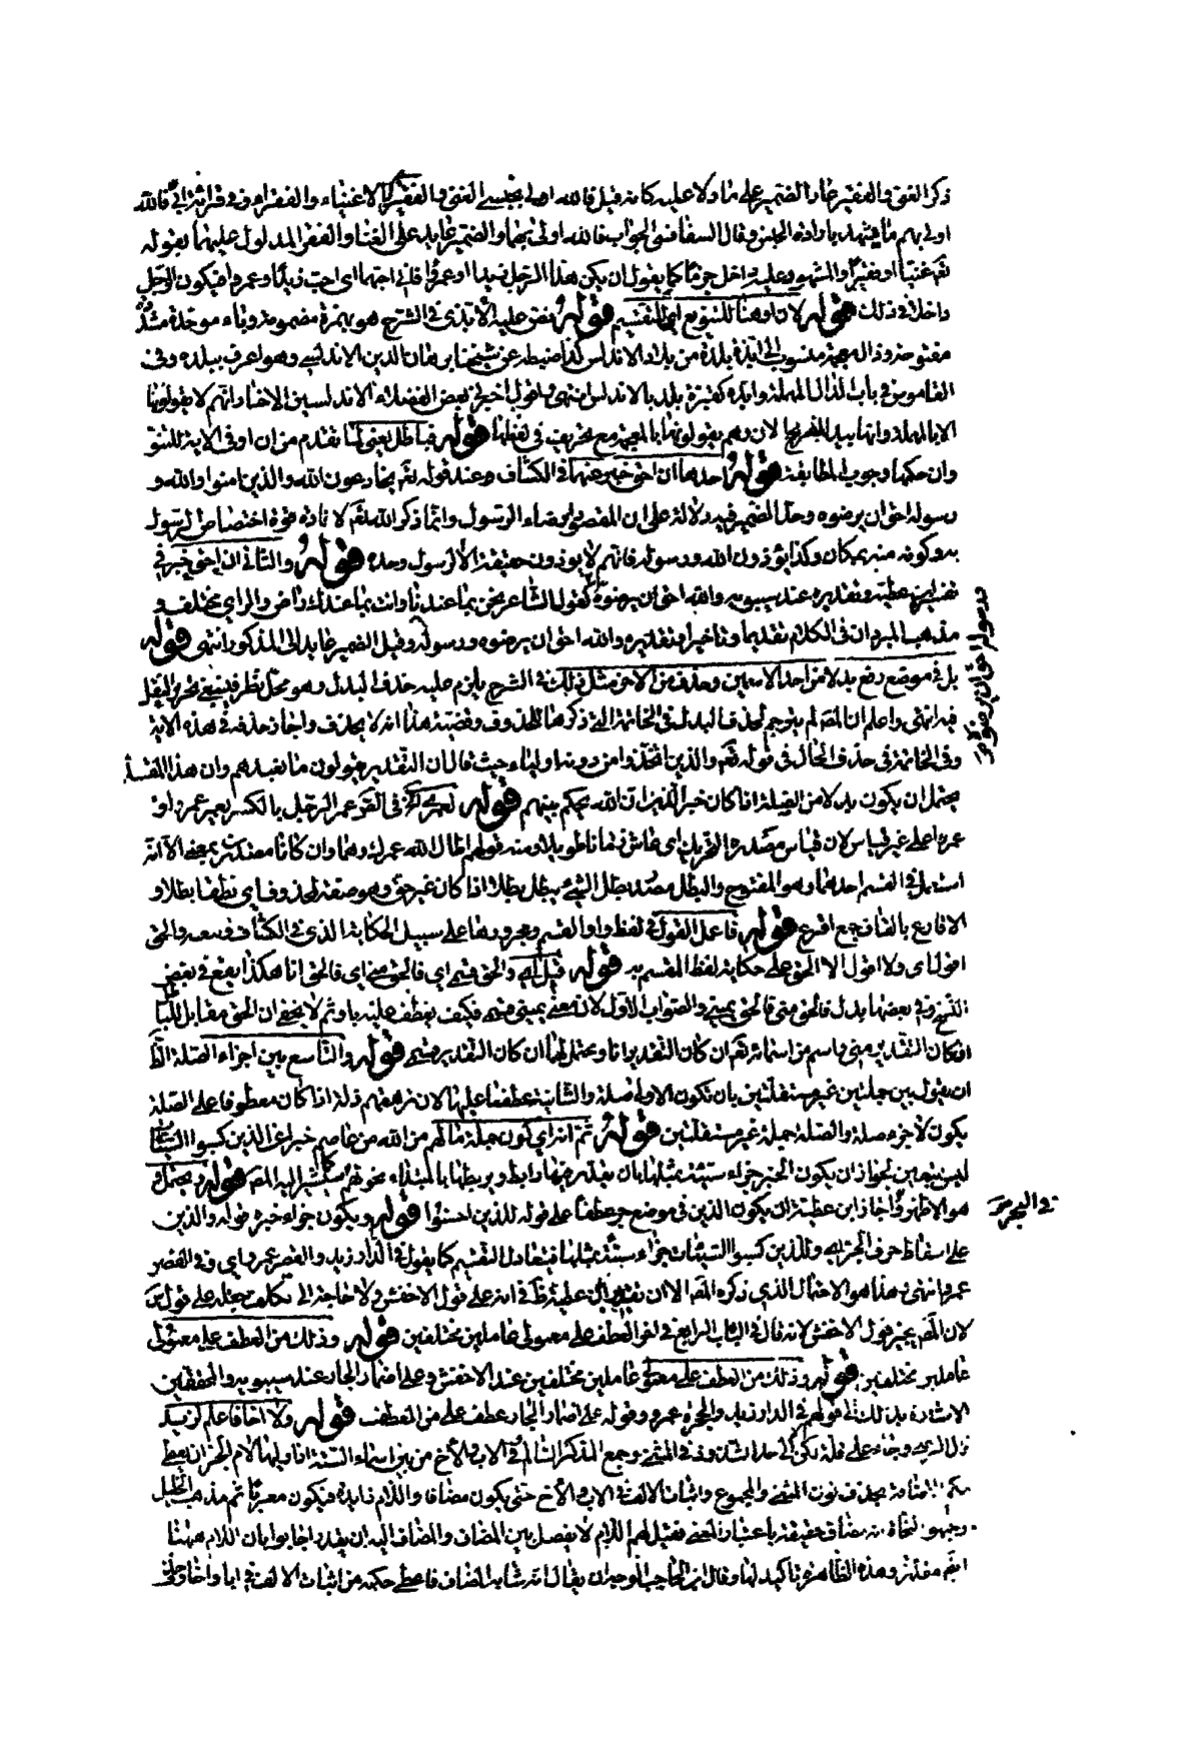 ذكر الغني والفقير عاد الضمير على ما دلا عليه كانه قيل فالله اولى بجنسي الغني والفقير اي الاغنياء والفقراء وفي قراءة ابي فالله
اولى بهم ما يشهد بارادة الجنس وقال السفاقسي الجواب فالله اولى بهما والضمير عايد على الغنا والفقر المدلول عليهما بقوله
تع غنيا او فقيرا والمشهود عليه داخل جزما كما يقول ان يكن هذا الرجل زيدا او عمروا فاني احبهما اي احب زيدا وعمروا فيكون الرجل
داخلا في ذلك قوله لان او هنا للتنويع اي للتقسيم قوله نص عليه الأبذي في الشرح هو بهمزة مضمومة وباء موحدة مشددة
مفتوحة وذال معجمة منسوب الى ابذة بلدة من بلاد الاندلس كذا ضبطه عن شيخنا برهان الدين الاندلسي وهو اعرف ببلده وفي
القاموس في باب الدال المهملة وابدة كقبرة بلد بالاندلس انتهى واقول اخبرني بعض الفضلاء الاندلسيين الاخيار انهم لا يقولونها
الا بالمهملة وانها بيد الفرنج الان وهم يقولونها بالمعجمة مع تحريف في لفظها قوله فباطل يعني لما تقدم من ان او في الاية للتنويع
وان حكمها وجوب المطابقة قوله احدهما ان احق خبر عنهما في الكشاف عند قوله تع يخادعون الله والذين امنوا والله و
رسوله احق ان يرضوه وحد الضمير فيه دلالة على ان المقصود ارضاء الرسول وانما ذكر الله تع لافادة قوة اختصاص الرسول
به وكونه منه بمكان وكذا يؤذون الله ورسوله فانهم لا يؤذون حقيقة الا الرسول وحده قوله والثاني ان احق خبر في
تفسير ابن عطية وتقديره عند سيبويه والله احق ان يرضوه كقول الشاعر نحن بما عندنا وانت بما عندك راض والراي مختلف و
مذهب المبرد ان في الكلام تقديما وتاخيرا وتقديره والله احق ان يرضوه ورسوله وقيل الضمير عايد الى المذكور انتهى قوله
بل في موضع رفع بدلا من احد الاسمين وحذف من الاخر مثل ذلك في الشرح يلزم عليه حذف البدل وهو محل نظر فينبغي تحرير النقل
فيه انتهى واعلم ان المص لم يترجم لحذف البدل في الخاتمة التي ذكرها للحذوف وقضيته هذا انه لا يحذف واجاز حذفه في هذه الاية
وفي الخاتمة في حذف الحال في قوله تع والذين اتخذوا من دونه اولياء حيث قال ان التقدير يقولون ما نعبدهم وان هذا المقدر
يحتمل ان يكون بدلا من الصلة اذا كان خبر الذين ان الله يحكم بينهم قوله لعمرك في الصحاح عمر الرجل بالكسر يعمر عمرا و
عمرا على غير قياس لان قياس مصدره التحريك اي عاش زمانا طويلا ومنه قولهم اطال الله عمرك وهما وان كانا مصدرين بمعنى الا انه
استعمل في القسم احدهما وهو المفتوح والبطل مصدر بطل الشئ يبطل بطلا اذا كان غير حق وهو صفة لمحذوف اي نطقا بطلا و
الاقارع بالقاف جمع اقرع قوله فاعمل القول في لفظ واو القسم ومجرورها على سبيل الحكاية الذي في الكشاف والحق
اقول اي ولا اقول الا الحق على حكاية لفظ المقسم به قوله قيل اي والحق قسمي اي فالحق مني اي فالحق انا هكذا يقع في بعض
النسخ وفي بعضها بدل فالحق مني فالحق يميني والصواب الاول لان معنى يميني قسمي فكيف يعطف عليه باو ثم لا يخفى ان الحق مقابل للباطل
ان كان التقدير مني واسم من اسمائه تع ان كان التقدير انا ويحتملهما ان كان التقدير قسمي قوله والتاسع بين اجزاء الصلة
ان يقول بين جملتين غير مستقلتين بان تكون الاولى صلة والثانية عطفا عليها لان ترهقهم ذلة اذا كان معطوفا على الصلة
يكون كاجزء صلة والصلة جملة غير مستقلتين قوله ثم انه اي كون جملة ما لهم من الله من عاصم خبرا عن الذين كسبوا السيئات
ليس بمتعين لجواز ان يكون الخبر جزاء سيئة بمثلها بان يقدر فيها رابط يربطها بالمبتداء نحو لهم كما يشير اليه المص قوله ويحتمل
هو الاظهر واجاز ابن عطية ان يكون الذين في موضع جر عطفا على قوله للذين احسنوا قوله ويكون جزاء خبره قوله والذين
على اسقاط حرف الجر اي وللذين كسبوا السيئات جزاء سيئة بمثلها فيتعادل التقسيم كما يقول في الدار زيد والقصر عمرو اي وفي القصر
عمرو انتهى وهذا هو الاحتمال الذي ذكره المص الا ان تقدير ابن عطية ظ في انه على قول الاخفش ولا حاجة الى تكلف حمله على قول س
لان المص يجيز قول الاخفش لانه قال في الباب الرابع في اخر العطف على معمولي عاملين مختلفين قوله وذلك من العطف على معمولي
عاملين مختلفين قوله وذلك من العطف على معمولي عاملين مختلفين عند الاخفش وعلى اضمار الجار عند سيبويه والمحققين
الاشارة بذلك الى قولهم في الدار زيد والحجرة عمرو وقوله على اضمار الجار عطف على من العطف قوله ولا اخا فاعلم لزيد
وجمع المذكر السالم في الاب والاخ من بين اسماء الستة اذا وليها لام الجر ان يعطى
بحذف نون المثنى والمجموع واثبات الالف في الاب والاخ حتى يكون مضافا واللام زايدة فيكون معربا ثم مذهب الخليل
وجمهور النحاة انه مضاف حقيقة باعتبار المعنى فقيل لهم اللام لا يفصل بين المضاف والمضاف اليه ان يقدر اجابوا بان اللام ههنا
ايضا مقدرة وهذه الظاهرة تاكيد لها وقال ابن الحاجب الوجه ان يقال انه شابه المضاف فاعطى حكمه من اثبات الالف في ابا واخا وحذف
ورسوله احق ان يرضوه
في البحر